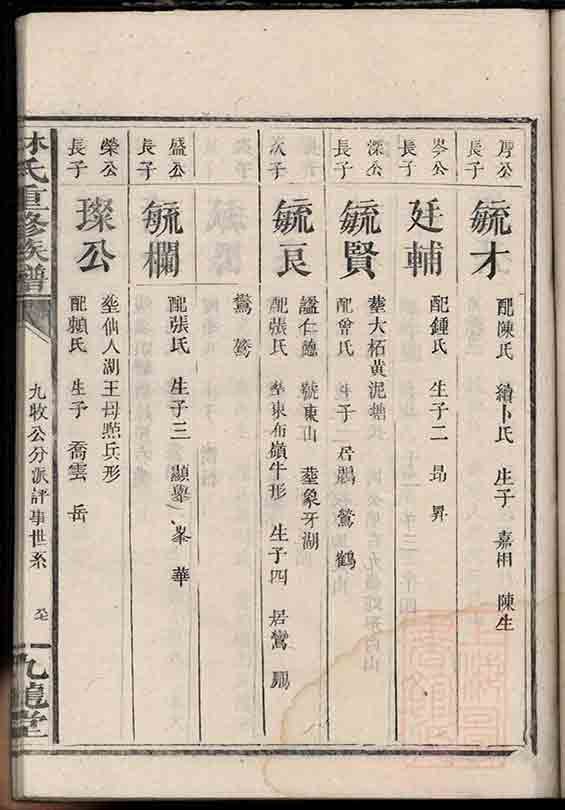 房公
長子
毓才
配陳氏 續卜氏 生子 嘉相 陳生
岑公
長子
廷輔
配鍾氏 生子二 昂 昇
深公
長子
毓賢
塟大柘黄泥塘
配曾氏 生子 居鵾 鶯 鶴
次子
毓良
謚仁德 號東山 塟象牙湖
配張氏 塟東布嶺牛形 生子四 居鸞 鳳
鶯
盛公
長子
毓欄
配張氏 生子三 顯舉 峯 華
榮公
長子
璨公
塟仙人湖王母㸃兵形
配賴氏 生子 喬雲 岳
林氏重修族譜
九牧公分派評事世系
九龍堂